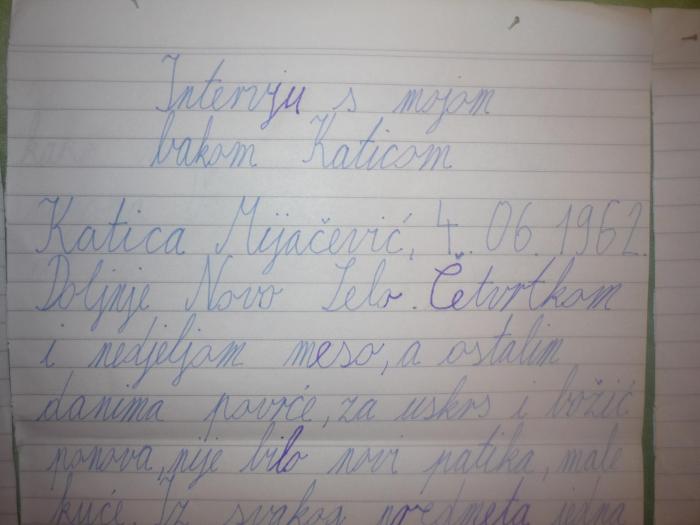 Intervju s mojom
bakom Katicom
Katica Mijačević, 4. 06. 1962.
Doljnje Novo Selo. Četvrtkom
i nedjeljom meso, a ostalim
danima povrće, za uskrs i božić
ponova, nije bilo novi patika, male
kuće. Iz svakog predmeta jedna